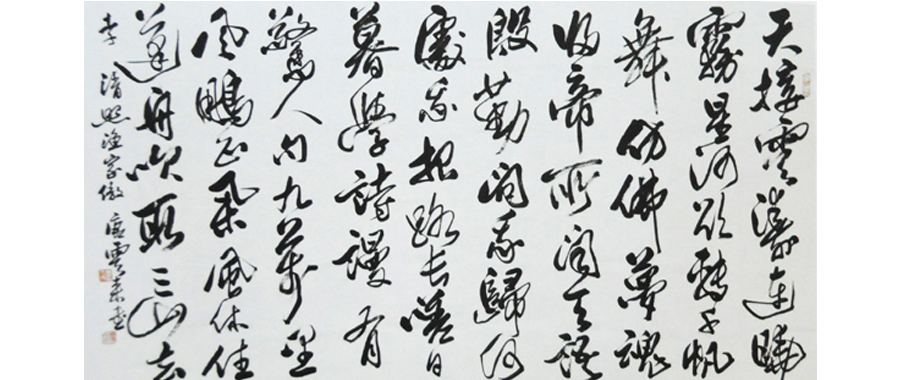 天接雲濤連曉
霧星河欲轉千帆
舞仿佛夢魂
归帝所聞天語
殷勤問我歸何
處我報路長嗟日
暮學詩謾有
驚人句九萬里
风鵬正舉風休住
蓬舟吹取三山去
李清照漁家傲 唐雲来書